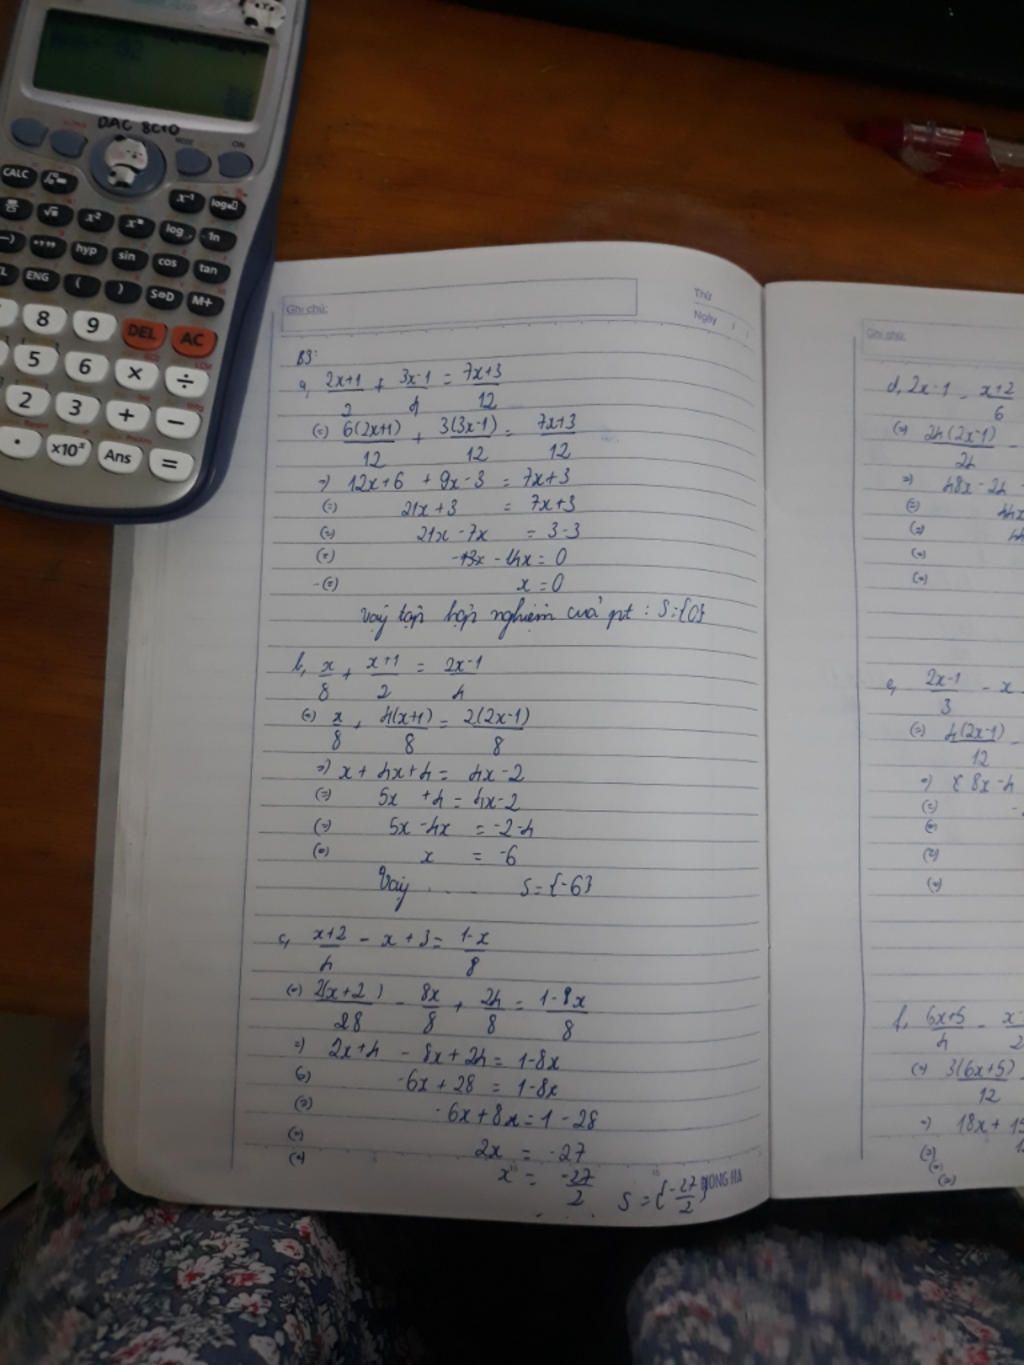 DAC 8C10
MODE ON
CALC x⁻¹ log
√ x² xⁿ log ln
hyp sin cos tan
ENG ( ) S⇔D M+
8 9 DEL AC
5 6 × ÷
2 3 + −
· ×10ˣ Ans =
Ghi chú:
Thứ
Ngày / /
B3:
a, (2x+1)/2 + (3x-1)/4 = (7x+3)/12
(=) 6(2x+1)/12 + 3(3x-1)/12 = (7x+3)/12
=) 12x+6 + 9x-3 = 7x+3
(=) 21x+3 = 7x+3
(=) 21x-7x = 3-3
(=) 14x = 0
(=) x = 0
Vậy tập hợp nghiệm cuả pt : S={0}
b, x/8 + (x+1)/2 = (2x-1)/4
(=) x/8 + 4(x+1)/8 = 2(2x-1)/8
=) x + 4x+4 = 4x-2
(=) 5x +4 = 4x-2
(=) 5x-4x = -2-4
(=) x = -6
Vậy ..... S={-6}
c, (x+2)/4 - x + 3 = (1-x)/8
(=) 2(x+2)/28 - 8x/8 + 24/8 = (1-8x)/8
=) 2x+4 - 8x+24 = 1-8x
(=) -6x+28 = 1-8x
(=) -6x+8x = 1-28
(=) 2x = -27
(=) x = -27/2 S={-27/2}
Ghi chú:
d, 2x-1 - (x+2)/6
(=) 24(2x-1)/24 -
=) 48x-24
(=) 44x
(=)
(=)
(=)
e, (2x-1)/3 - x
(=) 4(2x-1)/12 -
=) 8x-4
(=)
(=)
(=)
(=)
f, (6x+5)/4 - x-
2
(=) 3(6x+5)/12
=) 18x+15
(=)
(=)
(=)